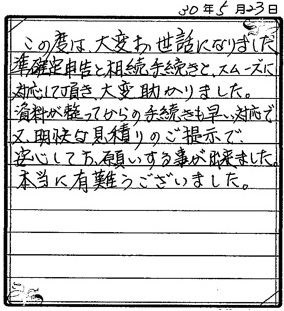 30年5月23日
この度は、大変お世話になりました
準確定申告と相続手続きと、スムーズに
対応して頂き、大変助かりました。
資料が整ってからの手続きも早い対応で
又、明快な見積りのご提示で、
安心してお願いする事が出来ました。
本当に有難うございました。